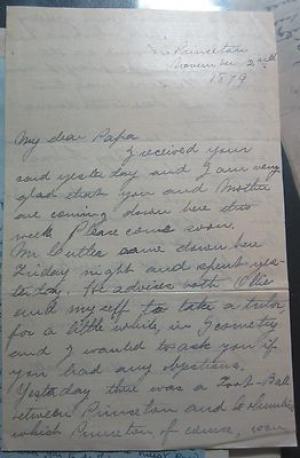 Princeton
November 2nd
1879
My dear Papa
I received your
card yesterday and I am very
glad that you and Mother
are coming down here this
week Please come soon.
Mr Cutler came down here
Friday night and spent yes-
terday. He advises both Ollie
and myself to take a tutor
for a little while, in Geometry
and I wanted to ask you if
you had any objections.
Yesterday there was a Foot-Ball
between Princeton and Columbia
which Princeton of course, won